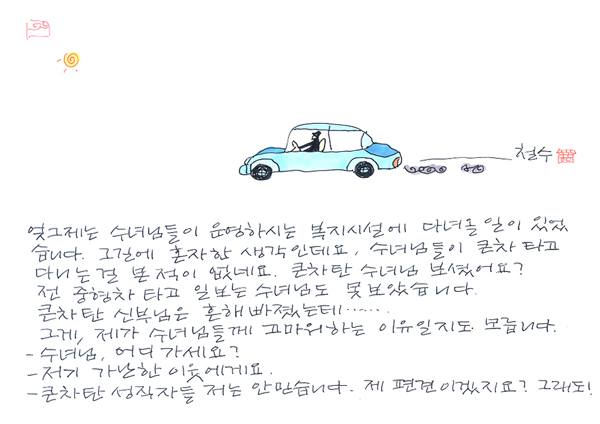 철수
엊그제는 수녀님들이 운영하시는 복지시설에 다녀올 일이 있었
습니다. 그길에 혼자한 생각인데요, 수녀님들이 큰차 타고
다니는걸 본 적이 없네요. 큰차탄 수녀님 보셨어요?
전 중형차 타고 일보는 수녀님도 못보았습니다.
큰차탄 신부님은 흔해 빠졌는데……
그게, 제가 수녀님들께 고마워하는 이유일지도 모릅니다.
- 수녀님, 어디 가세요?
- 저기 가난한 이웃에게요.
- 큰차탄 성직자들 저는 안믿습니다. 제 편견이겠지요? 그래도!